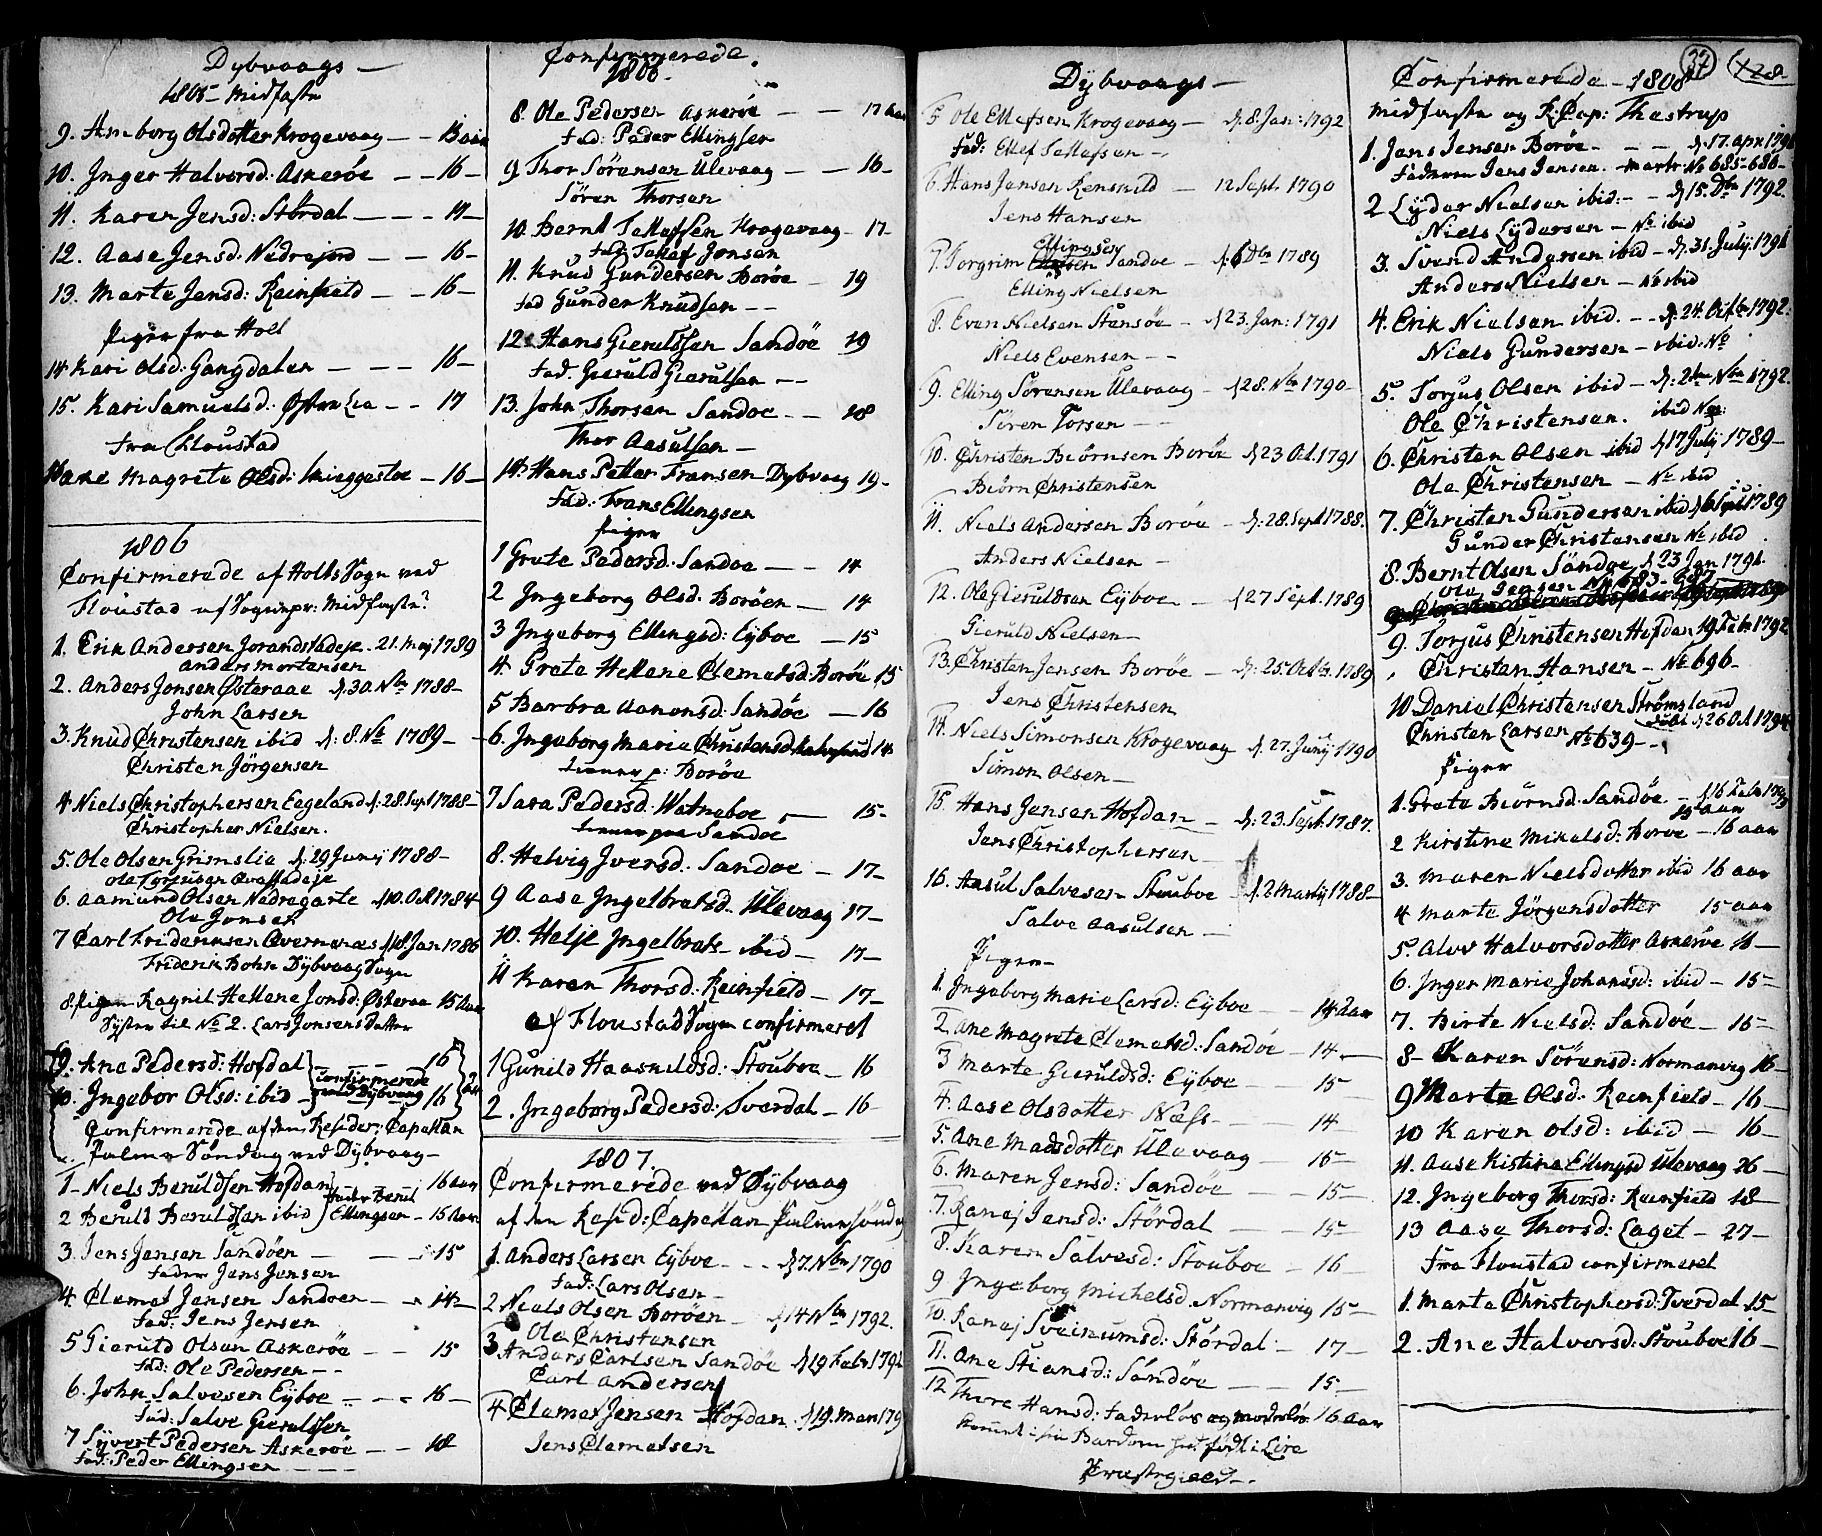 Dybvaags —
1805 – Midfaste
9. Amborg Olsdotter Krogevaag — —
10. Inger Halvorsd: Askerøe — — 16 —
11. Karen Jensd: Stördal — — — 17 —
12. Aase Jensd. Nedrejord — — 16 —
13. Marte Jensd: Reinfield — — 16 —
Piger fra Holt
14 Kari Olsd: Gangdalen — — — 16 —
15. Kari Samuelsd: Østre Lia — — 17
fra Floustad
16 Ane Magrete Olsd: — 16 —
1806
Confirmerede af Holts Sogn ved
Floustad af Sognepr: Midfaste
1. Erik Andersen Jorandstadeje. 21. Maj 1789
Anders Mortensen
2. Anders Jonsen Østeraae d. 30. Nbr 1788 —
John Larsen
3. Knud Christensen ibid d. 8. Nbr 1789 —
Christen Jörgensen
4 Niels Christophersen Eegeland d. 28. Sept 1788 —
Christopher Nielsen.
5. Ole Olsen Grimslie d. 29 Junij 1788 —
Ole Torjusen
6. Aamund Olsen Nedregarte d. 10. Oct 1784
Ole Jonsen
7 Carl Friderichsen Qvernenæs d. 18. Jan 1786
Friderik Bohn Dybvaag Sogn
8. Pigen Ragnil Hellene Jonsd: Østeraa 15 Aar
Syster til No 2. Lars Jonsens Datter
9. Ane Pedersd: Hofdal — — 16
10. Ingebor Olsd: ibid — confirmerede ved Dybvaag 16
Confirmerede af den Resider: Capellan
Palme Söndag ved Dybvaag —
1 – Niels Beruldsen Hofdan 16 aar
2 Beruld Beruldsen ibid Fader Beruld Ellingsen — 15 Aar
3. Jens Jensen Sandöen — — 15
Fader Jens Jensen
4. Clemet Jensen Sandoen — — 14 —
Fad: Jens Jensen
5 Gieruld Olsen Askeröe — — 15
Fad: Ole Pedersen —
6. John Salvesen Eyboe — — 16 —
Fad: Salve Gieruldsen
7 Syvert Pedersen Askeröe — — 18
Fad: Peder Ellingsen — — —
Confirmerede.
1806.
8. Ole Pedersen Askeröe — — 17 Aar
Fad: Peder Ellingsen
9 Thor Sörensen Ulevaag — — 16 —
Sören Thorsen
10. Bernt Tellefsen Krogevaag — 17 —
Fad: Tellef Jonsen
11. Knud Gundersen Boröe — 19
Fad Gunder Knudsen — —
12 – Hans Gieruldsen Sandöe 19
Fad. Gieruld Gierulsen — —
13. John Thorsen Sandoe — — 18
Thor Aasulsen —
14. Hans Petter Fransen Dybvaag 19 —
Fad: Frans Ellingsen
Piger
1 Grete Pedersd: Sandoe — — 14
2 Ingeborg Olsd. Boröen — — 14
3 Ingeborg Ellingsd: Eyboe — 15
4. Grete Hellene Clemetsd. Boröe 15
5 Barbra Aanonsd: Sandöe — 16
6. Ingeborg Marie Christensd. 14
Boröe
7 Sara Pedersd. Watneboe — 15 —
Sandoe
8. Helvig Iversd. Sandoe — 17 —
9 Aase Ingelbretsd. Ulevaag 17 —
10. Helje Ingelbrets – ibid — 17 —
11 Karen Thorsd: Reinfield — 17 —
af Floustad Sogn confirmeret
1 Gunild Haaskildsd: Stouboe — 16
2. Ingeborg Pedersd: Sverdal — 16 —
1807.
Confirmerede ved Dybvaag
af den Resid: Capellan Palmesöndag
1. Anders Larsen Eyboe — — d 7. Nbr 1790
Fad: Lars Olsen —
2 Niels Olsen Boröen — d 14 Nbr 1792.
Ole Christensen
3 Anders Carlsen Sandöe d 19 Febr 1792
Carl Andersen
4 Clemet Jensen Hofdan. d 19. Mart 179
Jens Clemetsen
Dybvaags —
5 Ole Ellefsen Krogevaag — d. 8. Jan: 1792
Fad: Ellef Tellefsen —
6. Hans Jensen — 12 Sept. 1790
Jens Hansen
7. Torgrim Ellingsen Sandoe — d. 6 Dbr 1789
Elling Nielsen
8. Even Nielsen Stensöe — d 23. Jan: 1791
Niels Evensen — —
9. Elling Sörensen Ulevaag — d 28. Nbr 1790 —
Sören Torsen — —
10. Christen Biörnsen Boröe d 23 Oct. 1791
Biörn Christensen
11. Niels Andersen Boröe — d. 28. Sept 1788.
Anders Nielsen —
12. Ole Gieruldsen Eyboe — d 27 Sept. 1789
Gieruld Nielsen —
13. Christen Jensen Boröe — d. 25. Octbr. 1789
Jens Christensen
14. Niels Simonsen Krogevaag d 27. Junij 1790
Simon Olsen —
15. Hans Jensen Hofdan — d. 23. Sept. 1787.
Jens Christophersen —
16. Aasul Salvesen Stouboe — d. 2 Martij 1788 —
Salve Aasulsen —
Piger —
1. Ingeborg Marie Larsd: Eyboe — — 14 Aar
2. Ane Magrete Clemetsd: Sandöe — 14 —
3 Marte Gieruldsd: Eyboe — — 15 —
4. Aase Olsdotter Næss — — — 14 —
5. Ane Madsdotter Ulevaag — 15 —
6. Maren Jensd: Sandöe — — 15 —
7. Ranej Jensd: Stördal — — 15 —
8. Karen Salvesd: Stouboe — 16 —
9 Ingeborg Michelsd. Normanvig 15 —
10. Ranej Sveinumsd: Stördal — 17 —
11. Ane Stiansd: Sandöe — — 15 —
12 Thore Hansd: Faderlös og moderlös 16 Aar
kommet i sin Barndom hid födt i Lire
Præstegield —.
37 128
Confirmerede – 1808
Midfaste og R: Cap: Thestrup
1. Jens Jensen Boröe — — — d. 17. Apr. 1791
Faderen Jens Jensen. Martr: No 685 – 686 —
2 Lyder Nielsen ibid: — — d 15. Dbr 1792.
Niels Lydersen — No ibid
3. Svend Andersen ibid — d. 31. Julij 1791
Anders Nielsen — No ibid
4. Erik Nielsen ibid. — — d: 24. Octbr 1792.
Niels Gundersen — ibid. No
5. Torjus Olsen ibid — d: 2den Nbr 1792.
Ole Christensen. ibid No:
6. Christen Olsen ibid d 17 Julij 1789 —
Ole Christensen — No ibid
7. Christen Gundersen ibid d 6 Sept 1789
Gunder Christensen No ibid
8. Bernt Olsen Söndoe d 23 Jan 1791.
Ole Jensen No 693 – 697
9. Torjus Christensen Hofdan 19 Febr 1792
Christen Hansen — No 696 —
10 Daniel Christensen Strömsland
d 26 Oct 1794
Christen Larsen No 639 — —
Piger
1. Grete Biörnsd. Sandöe — d 16 Febr 1793
15 Aar
2 Kirstine Mikelsd: Boroe — 16 aar
3. Maren Nielsdotter ibid 16 aar
4 Marte Jörgensdotter 15 aar
5. Alvv Halvorsdotter Askeröe 16 —
6. Inger Marie Johansd: ibid — 15 —
7. Birte Nielsd: Sandöe — 15 —
8 – Karen Sörensd: Normanvig 16 —
9 Marte Olsd: Reinfield — 16 —
10 Karen Olsd: ibid — 16 —
11. Aase Kistine Ellingsd Ulevaag 16 —
12. Ingeborg Thorsd: Reinfield 18 —
13 Aase Thorsd: Laget — 27 —
Fra Floustad confirmeret
1. Marte Christophersd: Tverdal 15 —
2. Ane Halvorsd: Stouboe 16 —